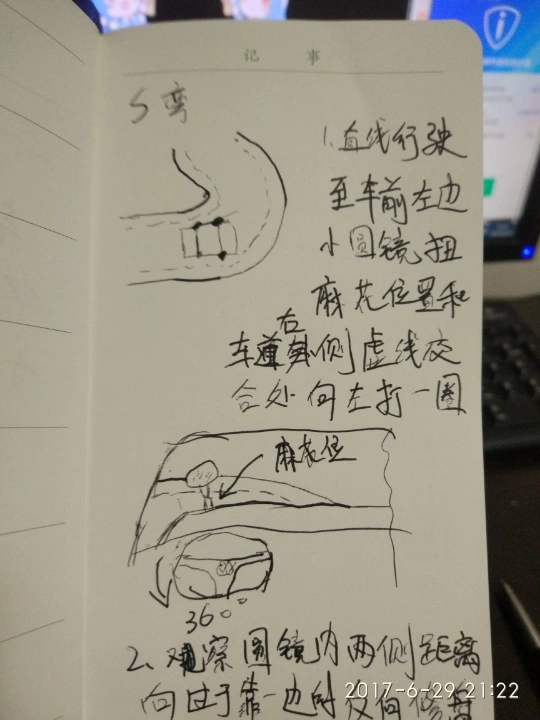 记 事
S弯
1.直线行驶
至车前左边
小圆镜扭
麻花位置和
右
车道侧虚线交
合处向左打一圈
麻花位
360°
2、观察圆镜内两侧距离
向过于靠一边时反向修
2017-6-29 21:22